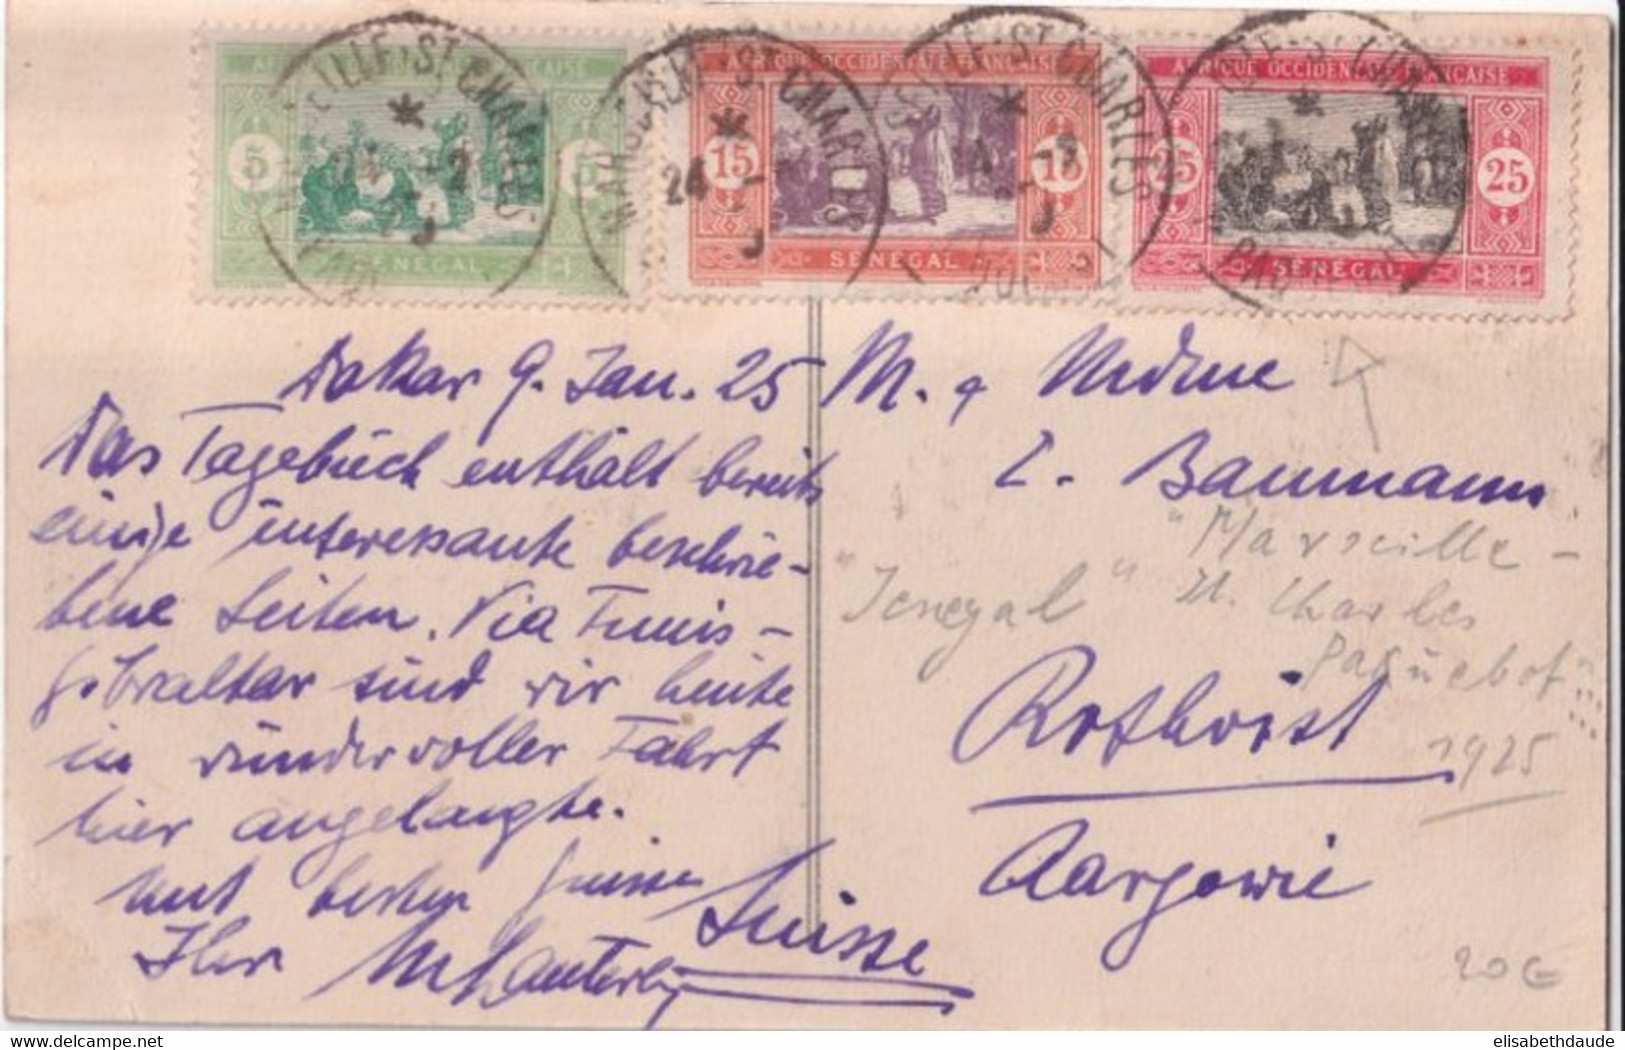 AFRIQUE OCCIDENTALE FRANÇAISE
5 5
SENEGAL
AFRIQUE OCCIDENTALE FRANÇAISE
15 15
SENEGAL
AFRIQUE OCCIDENTALE FRANÇAISE
25 25
SENEGAL
MARSEILLE-ST CHARLES
24
Dakar 9. Jan. 25
Das Tagebuch enthält bereits
einige interessante beschrie-
bene Seiten. Via Tunis-
Gibraltar sind wir heute
in wundervoller Fahrt
hier angelangt.
Mit besten Grüssen
Ihr
M. & Mdme
Baumann
Rothrist
Aargovie
Suisse
"Senegal"
"Marseille-
St. Charles
Paquebot"
1925
20€
delcampe.net
elisabethdaude